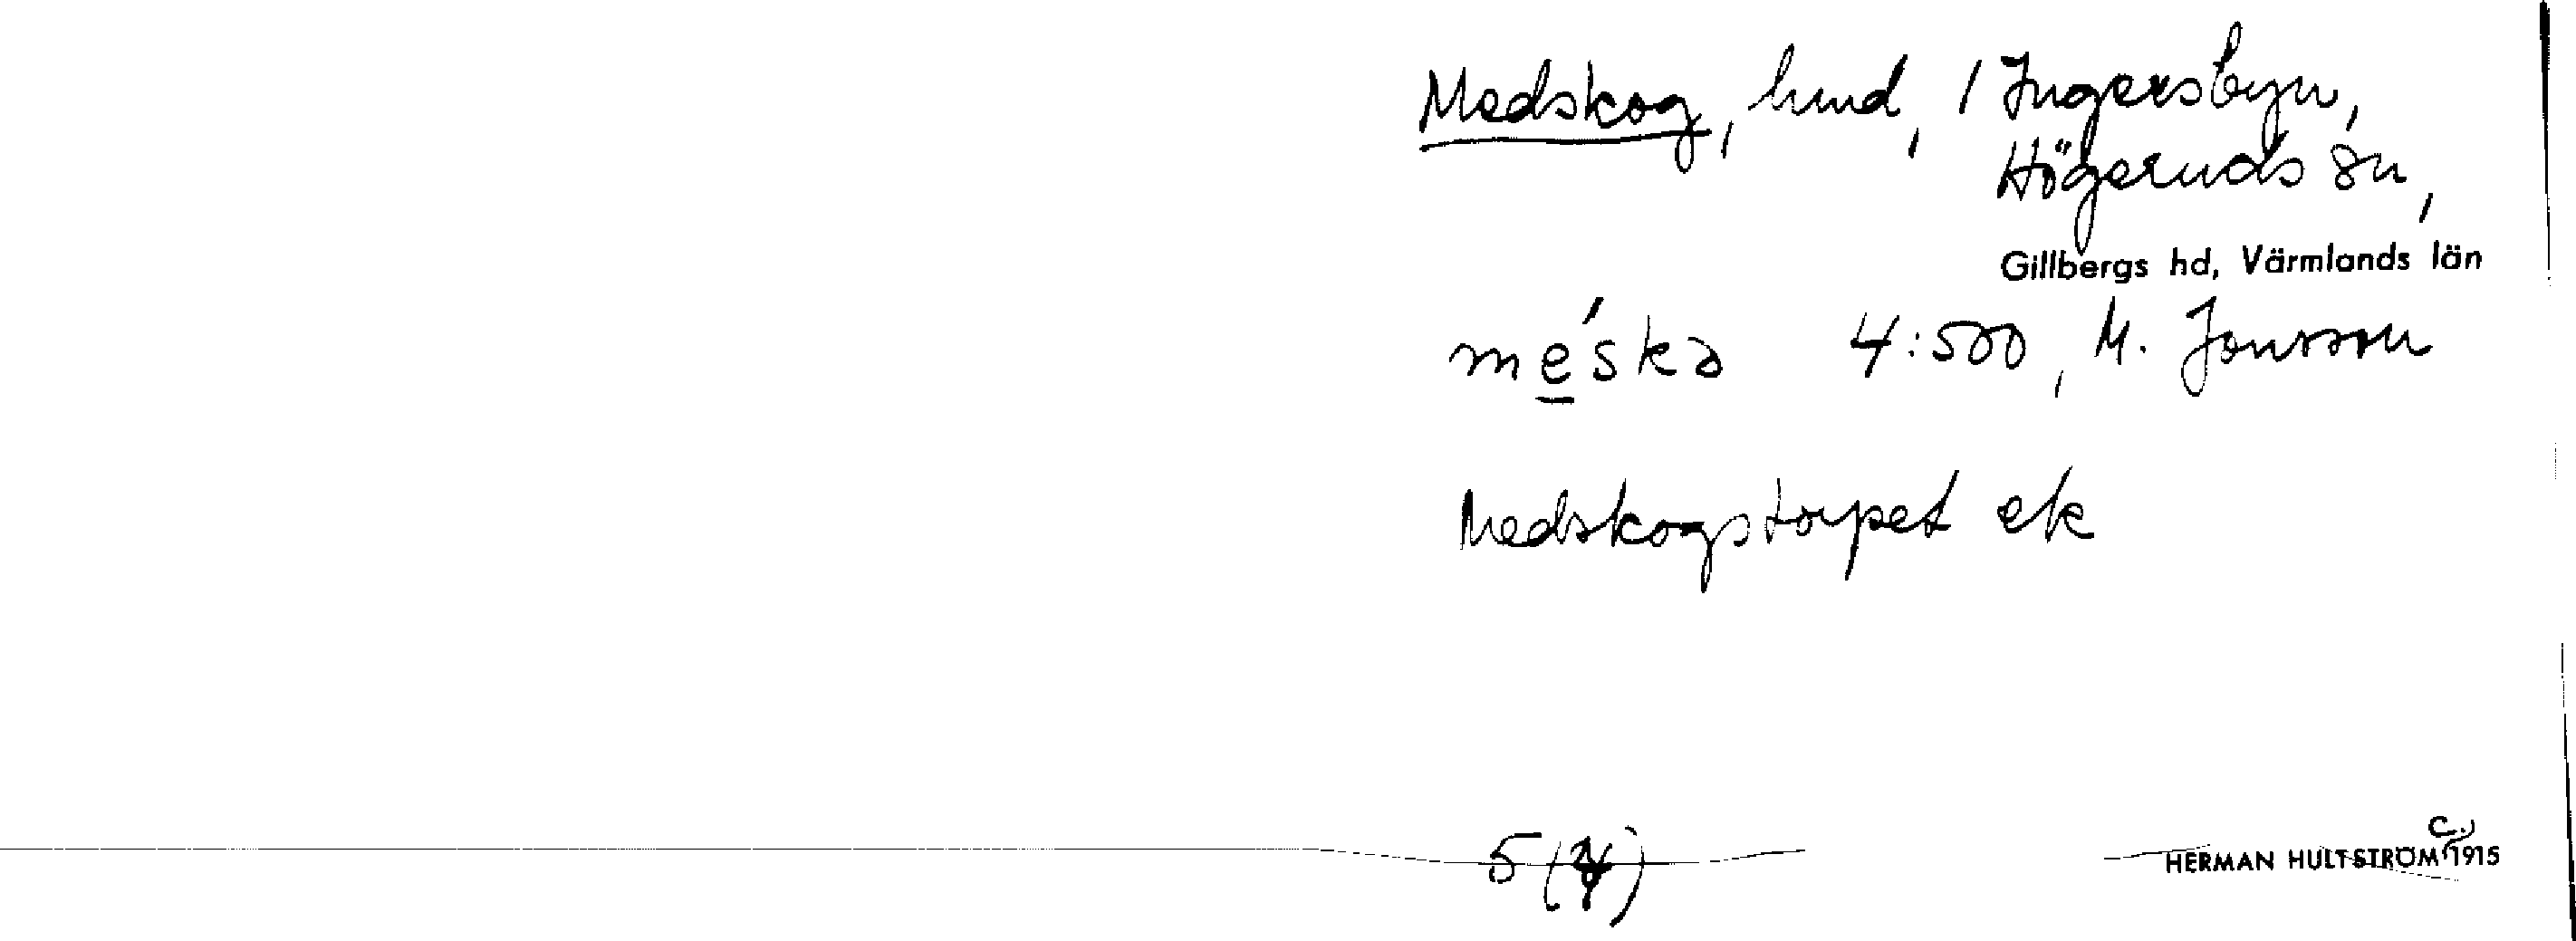 Medskog, hmd, / Ingersbyn,
Högeruds sn,
Gillbergs hd, Värmlands län
me̲´skə 4:500, M. Jonsson
Medskogstorpet ek
HERMAN HULTSTRÖM c. 1915